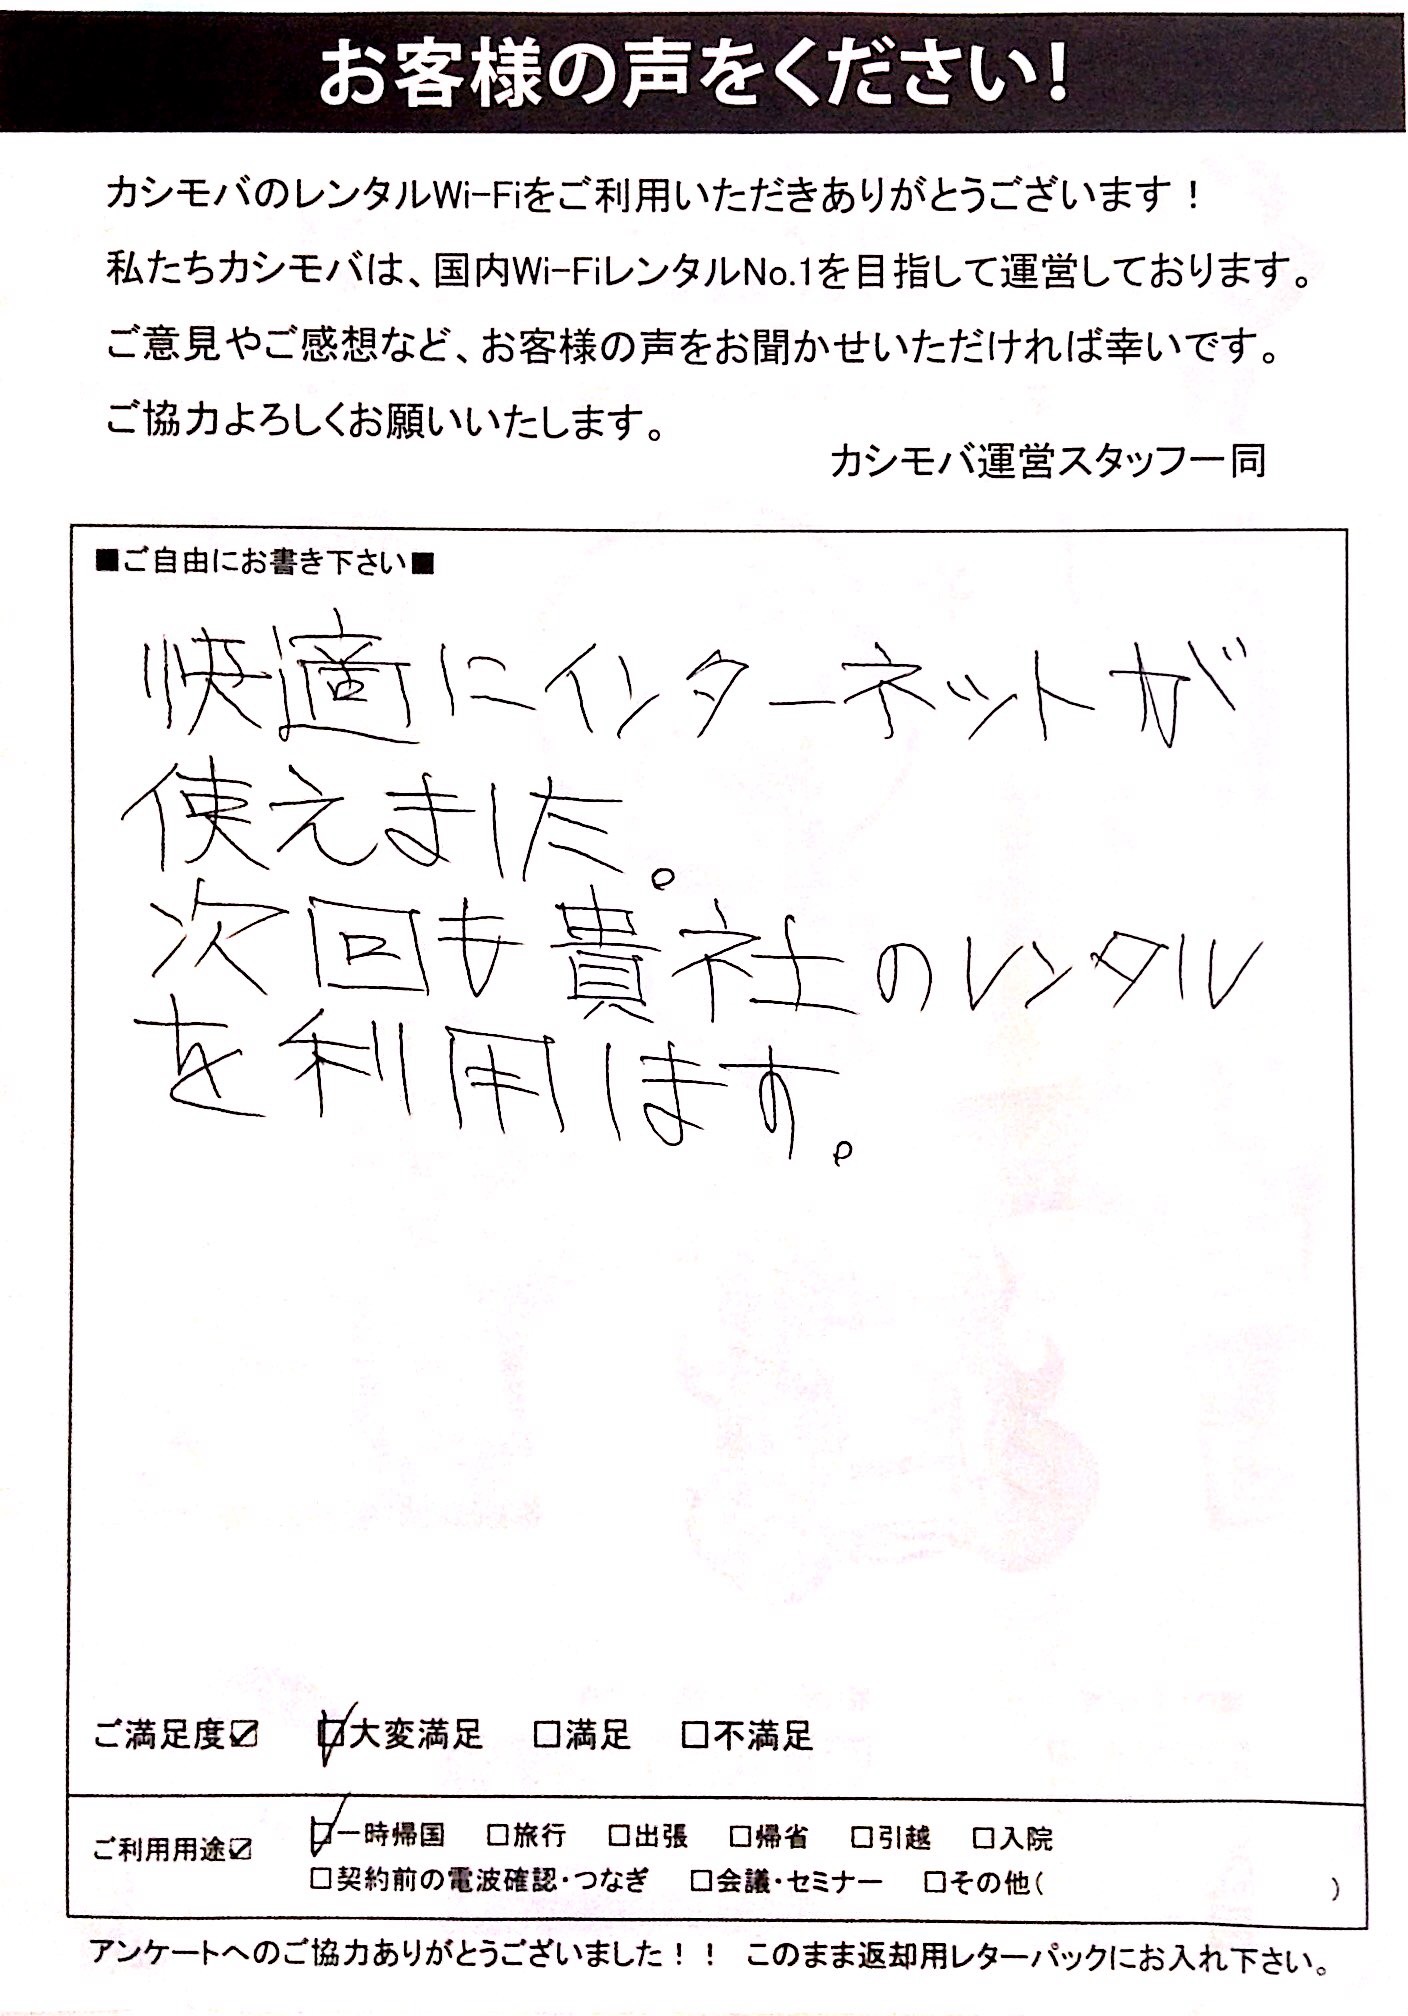 お客様の声をください!
カシモバのレンタルWi-Fiをご利用いただきありがとうございます！
私たちカシモバは、国内Wi-FiレンタルNo.1を目指して運営しております。
ご意見やご感想など、お客様の声をお聞かせいただければ幸いです。
ご協力よろしくお願いいたします。
カシモバ運営スタッフ一同
■ご自由にお書き下さい■
快適にインターネットが
使えました。
次回も貴社のレンタル
を利用します。
ご満足度☑ ☑大変満足 □満足 □不満足
ご利用用途☑ ☑一時帰国 □旅行 □出張 □帰省 □引越 □入院
□契約前の電波確認・つなぎ □会議・セミナー □その他( )
アンケートへのご協力ありがとうございました！！ このまま返却用レターパックにお入れ下さい。